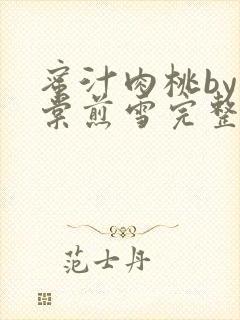 蜜汁肉桃by
棠煎雪完整
范士丹